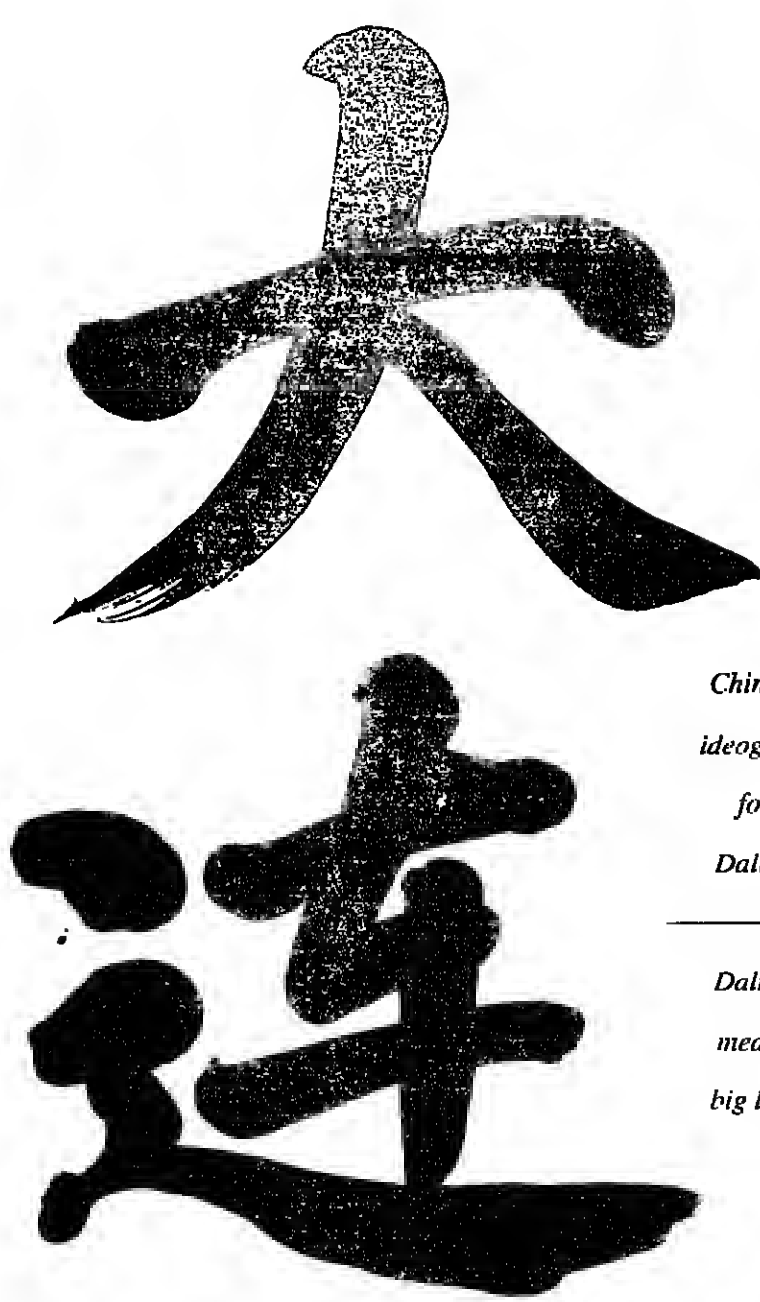 大
连
Chin
ideog
fo
Dal
Dali
mea
big l